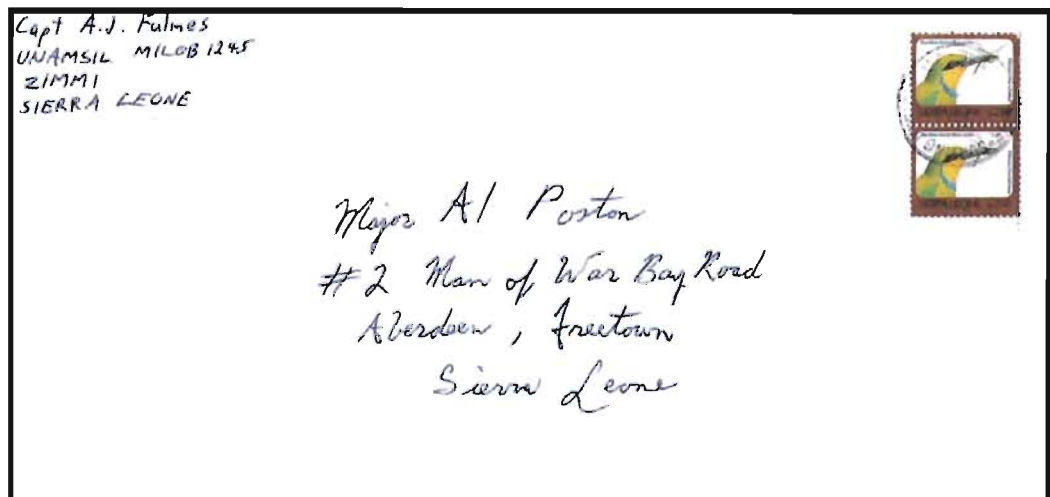 Capt A.J. Fulmes
UNAMSIL MILOB 1245
ZIMMI
SIERRA LEONE
Major Al Poston
#2 Man of War Bay Road
Aberdeen, Freetown
Sierra Leone